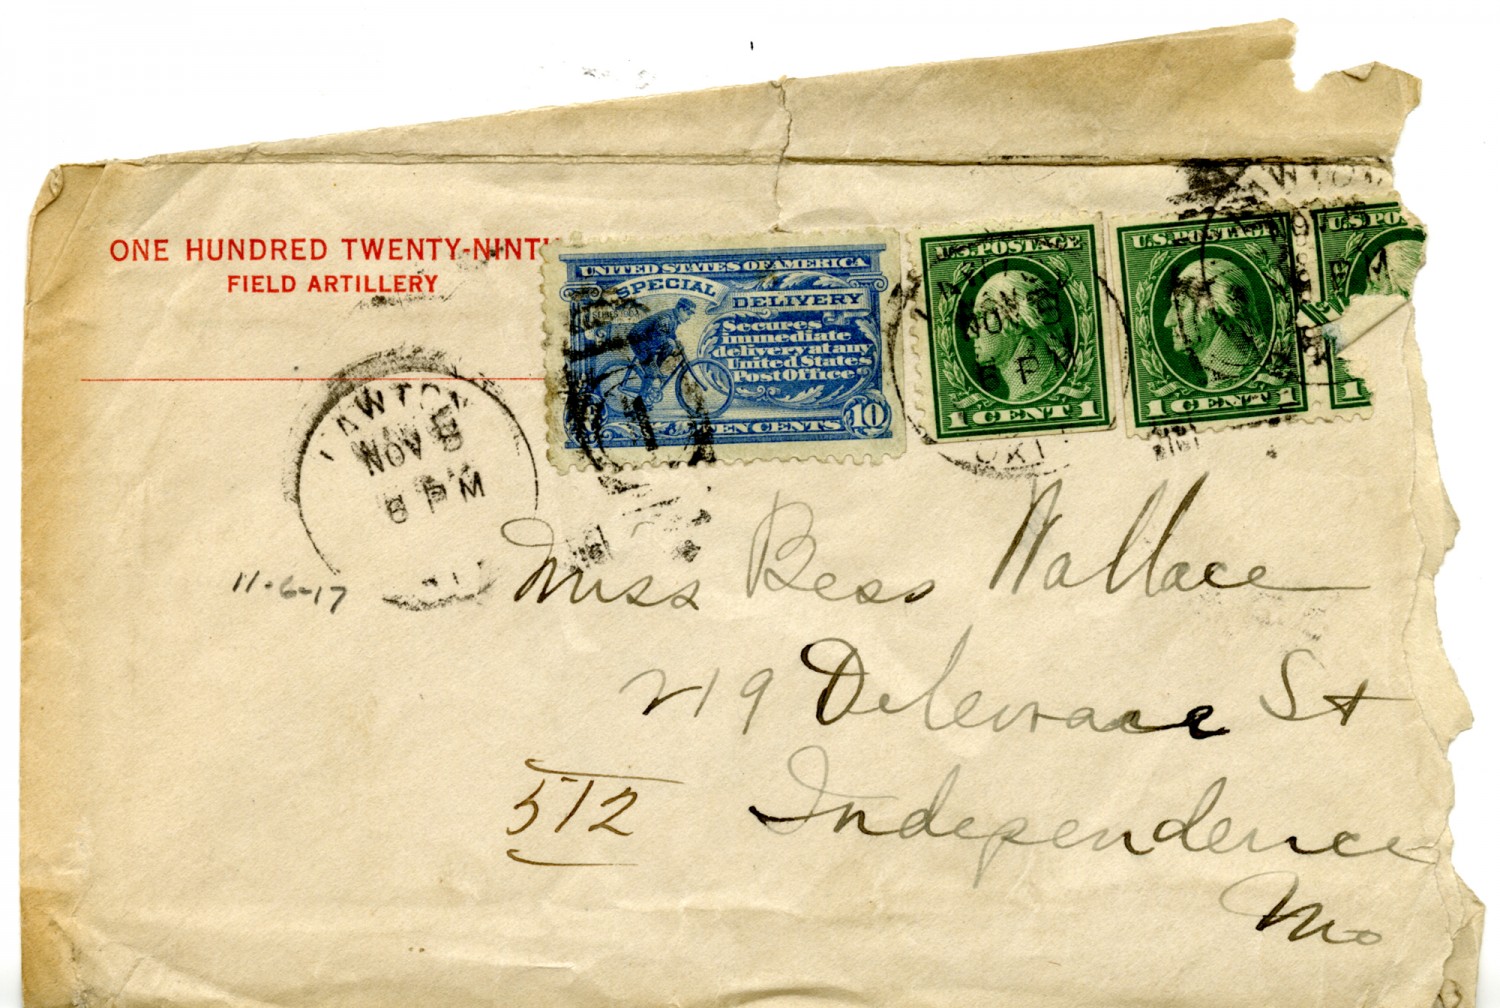 ONE HUNDRED TWENTY-NINTH
FIELD ARTILLERY
UNITED STATES OF AMERICA
SPECIAL DELIVERY
Secures
immediate
delivery at any
United States
Post Office
TEN CENTS 10
U.S. POSTAGE
1 CENT 1
U.S. POSTAGE
1 CENT 1
U.S. POS
1
LAWTON
NOV
8 PM
LAWTON
NOV
PM
OKLA
LAWTON
11-6-17
Miss Bess Wallace
219 Delewrace St
Independence
Mo
512